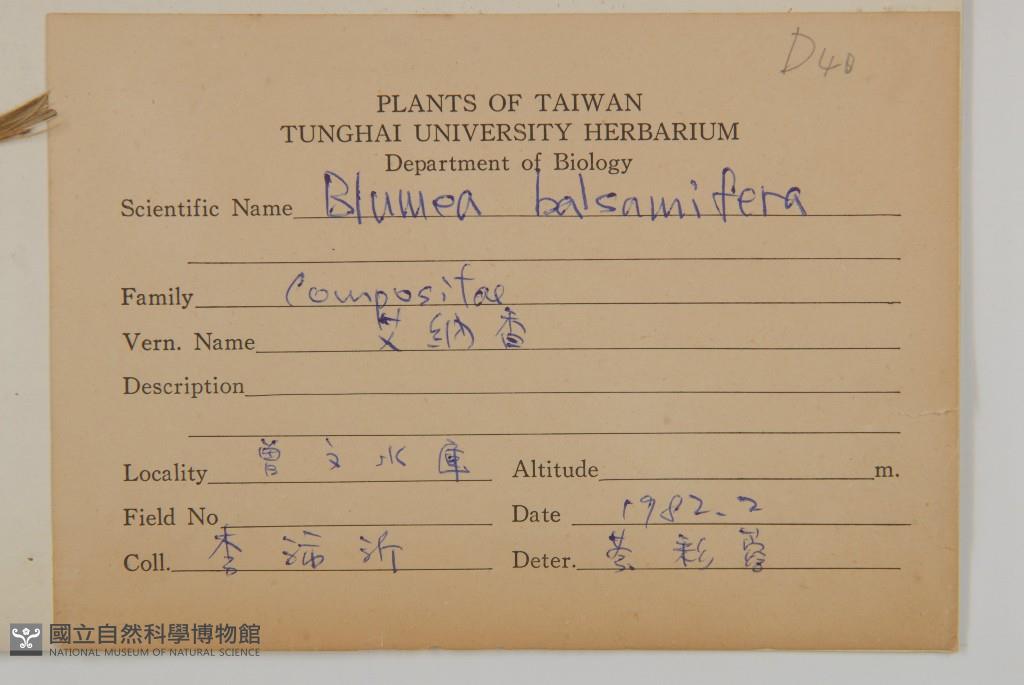 D40
PLANTS OF TAIWAN
TUNGHAI UNIVERSITY HERBARIUM
Department of Biology
Scientific Name Blumea balsamifera
Family Compositae
Vern. Name 艾納香
Description
Locality 曾文水庫 Altitude m.
Field No Date 1982.2
Coll. 李 Deter. 彩
國立自然科學博物館
NATIONAL MUSEUM OF NATURAL SCIENCE